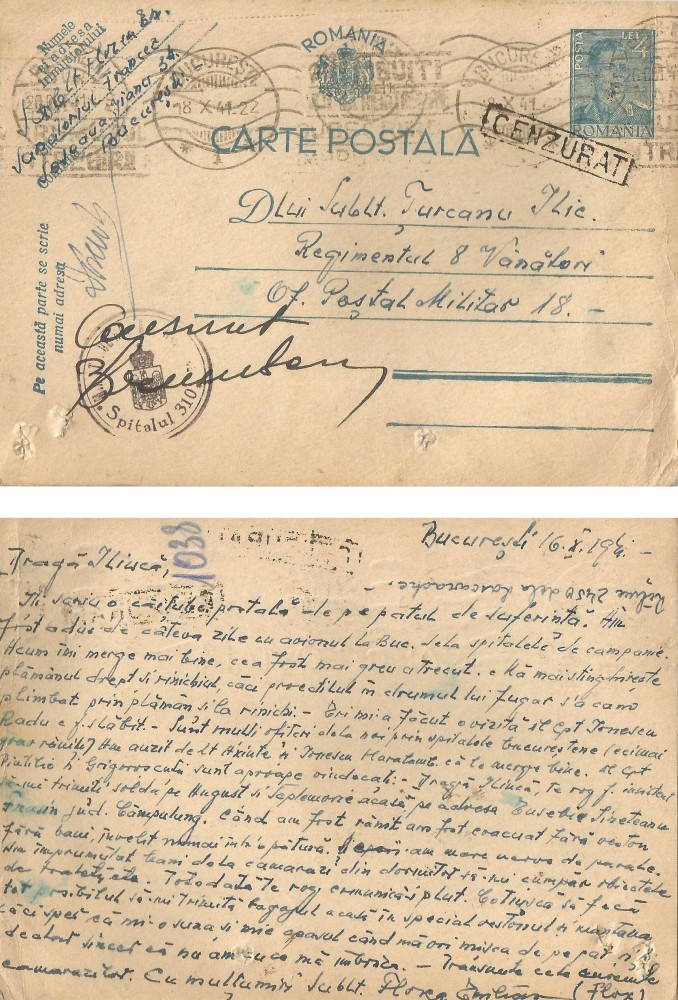 Numele
și adresa
trimițătorului
Sublt. Florea Em.
Sanatoriul Francez
Șoseaua Jianu 34.
București
ROMANIA
CARTE POSTALĂ
POSTA LEI 4
ROMANIA
BUCUREȘTI
18 X 41.22
CENZURAT
Pe această parte se scrie
numai adresa
Dlui Sublt. Țurcanu Ilie.
Regimentul 8 Vânători
Of. Poștal Militar 18. -
Spitalul 310
București 16.X.1941. -
1038
Dragă Iliucă,
Iți scriu o cărticică poștală - de pe patul de suferință. Am
fost adus de câteva zile cu avionul la Buc. dela spitalele de campanie.
Acum îmi merge mai bine, ce a fost mai greu a trecut. Mă mai stingherește
plămânul drept și rinichiul, căci proectilul în drumul lui fugar s'a cam
plimbat prin plămân și la rinichi. - Eri mi a făcut o vizită dl Cpt Ionescu
Radu e f. slăbit. - Sunt mulți ofițeri dela noi prin spitalele bucureștene (ecimai
grav răniți) Am auzit de lt Axinte și Ionescu Haralamb că le merge bine. dl Cpt
Pintilie și Grigoroscuță sunt aproape vindecați. - Dragă Iliucă, te rog f. insistent
să-mi trimiți solda pe August și Septemvrie acasă pe adresa Eusebie Sireteanu
Frasin jud. Câmpulung. Când am fost rănit am fost evacuat fără veston
fără bani, învelit numai într'o pătură. am mare nevoe de parale.
M'am împrumutat bani dela camarazi din dormitor să-mi cumpăr obiectele
de toaletă etc. Totodată te rog comunică-i plut. Coțiușca să facă
tot posibilul să-mi trimită bagajul acasă în special vestonul și mantaua
căci sper că mi o suna și mie ceasul când mă voi mișca de pe pat și
declar sincer că nu am cu ce mă îmbrăca. - Transmite cele cuvenite
camarazilor. Cu mulțumiri Sublt. Florea Emilian (Florea)